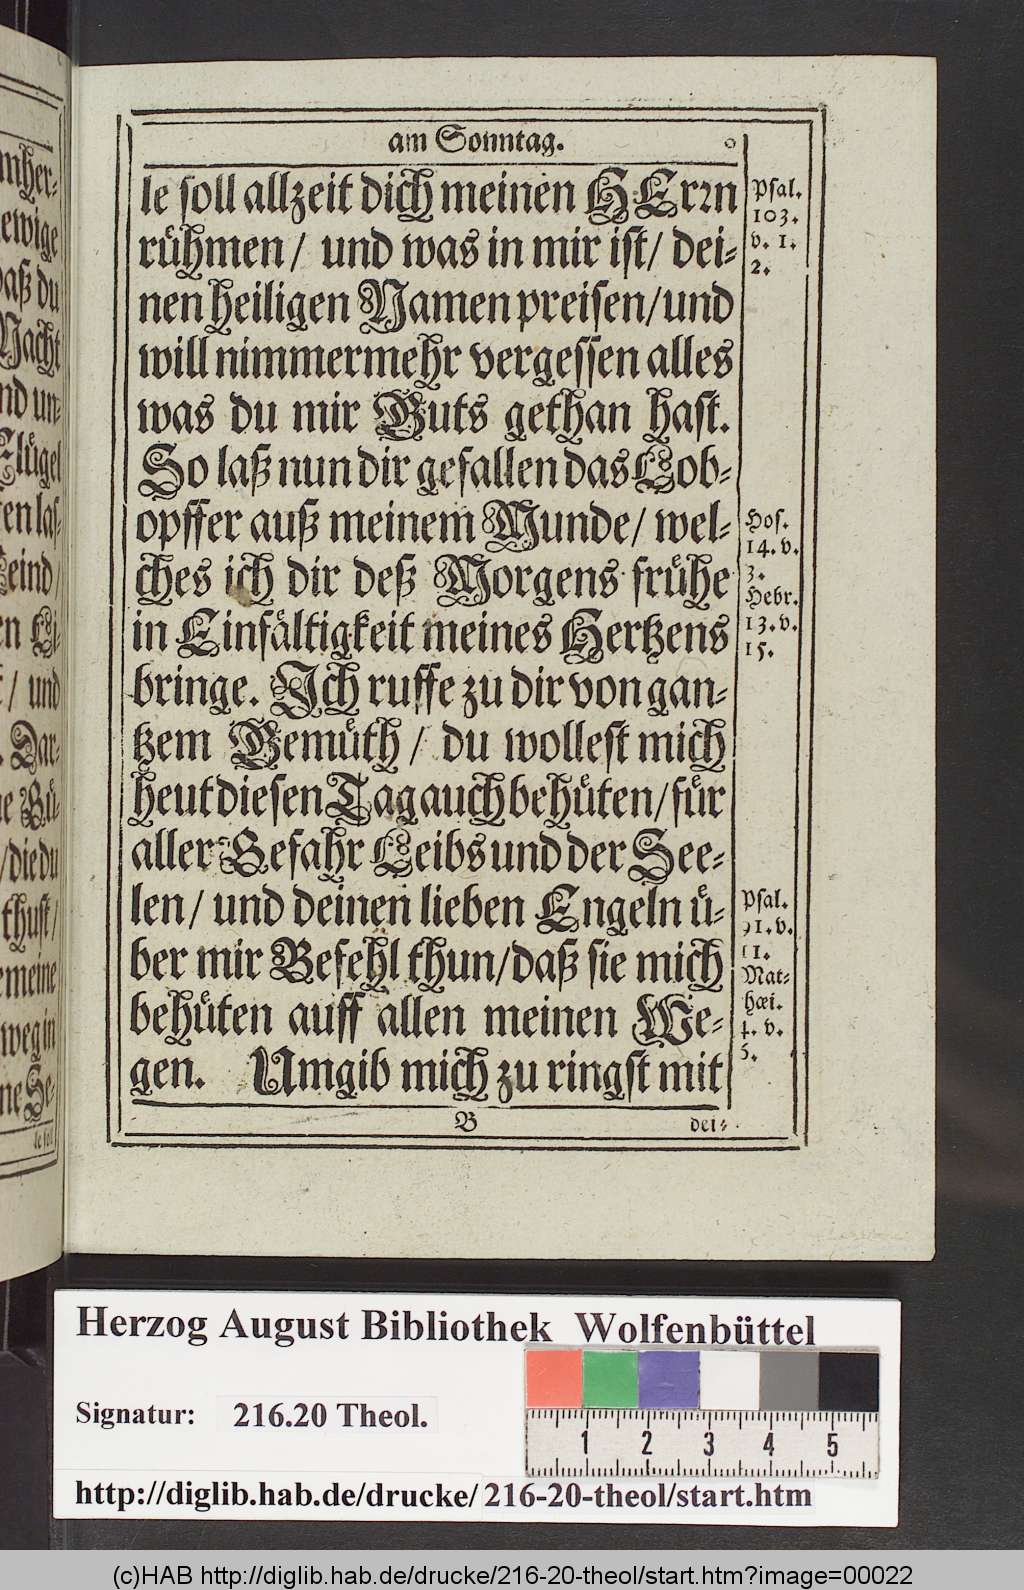 am Sonntag.
le soll allzeit dich meinen HErꝛn
rühmen / und was in mir ist / dei-
nen heiligen Namen preisen / und
will nimmermehr vergessen alles
was du mir Guts gethan hast.
So laß nun dir gefallen das Lob-
opffer auß meinem Munde / wel-
ches ich dir deß Morgens frühe
in Einfältigkeit meines Hertzens
bringe. Ich ruffe zu dir von gan-
tzem Gemüth / du wollest mich
heut diesen Tag auch behüten / für
aller Gefahr Leibs und der See-
len / und deinen lieben Engeln ü-
ber mir Befehl thun / daß sie mich
behüten auff allen meinen We-
gen. Umgib mich zu ringst mit
B
dei-
Psal.
103.
v. 1.
2.
Hos.
14. v.
3.
Hebr.
13. v.
15.
Psal.
91. v.
11.
Mat-
hæi.
4. v.
5.
mher-
ewige
daß du
Nacht
nd un-
Flügel
ten las-
Feind /
/ und
Dar-
Gü-
/ die du
thust /
meine
weg in
ne See-
le soll
Herzog August Bibliothek Wolfenbüttel
Signatur: 216.20 Theol.
1 2 3 4 5
http://diglib.hab.de/drucke/216-20-theol/start.htm
(c)HAB http://diglib.hab.de/drucke/216-20-theol/start.htm?image=00022